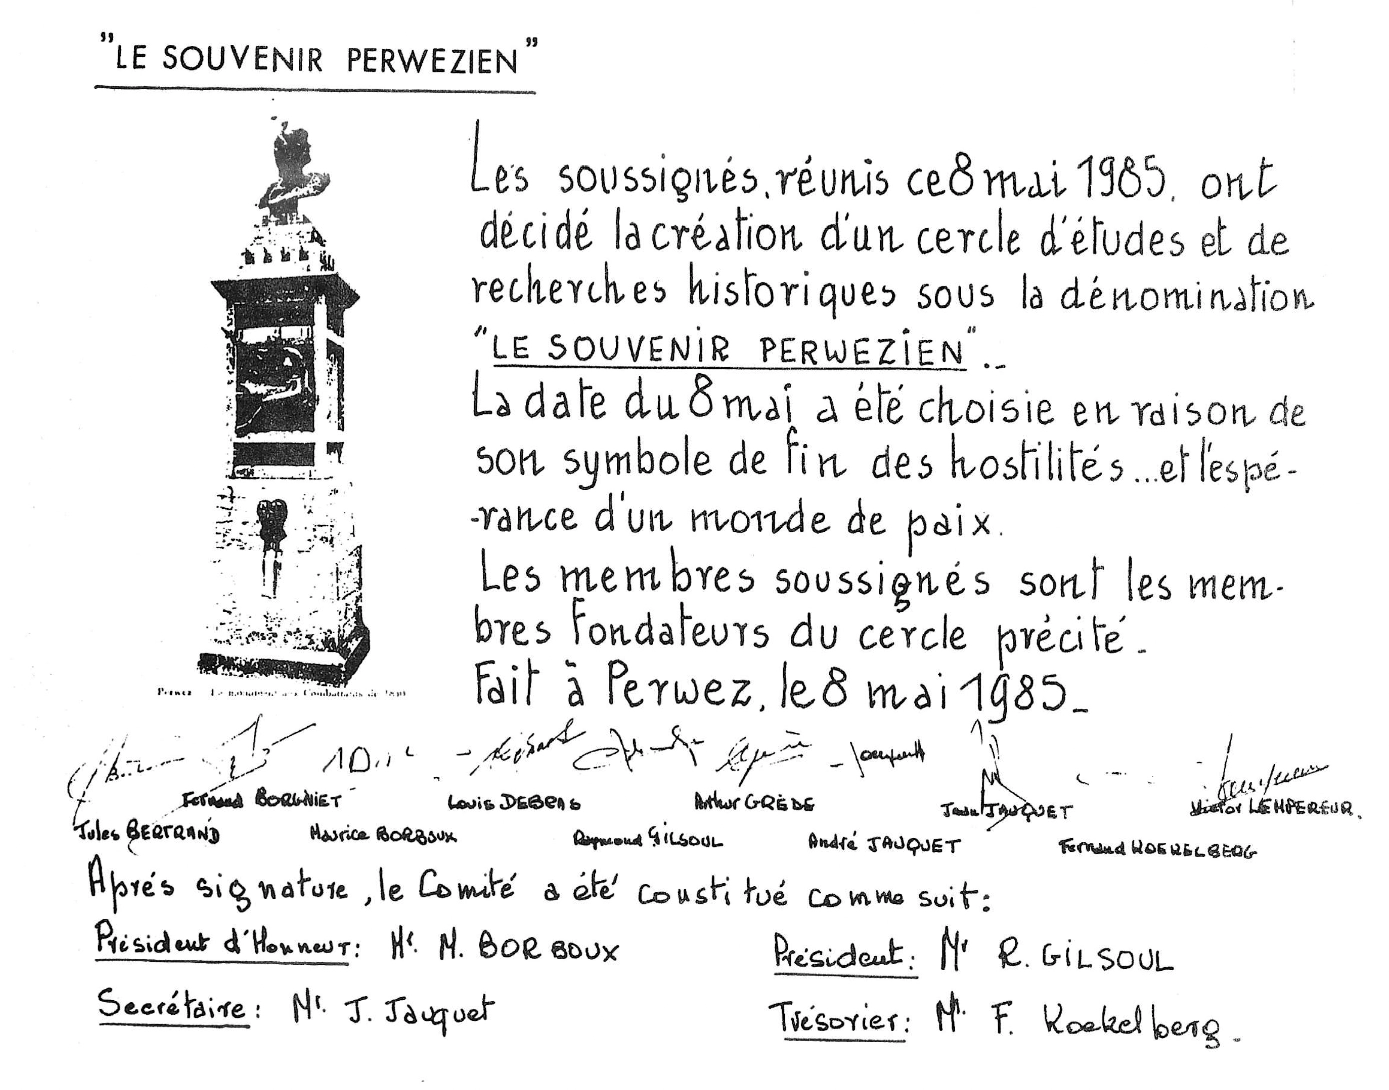 "LE SOUVENIR PERWEZIEN"
Les soussignés, réunis ce 8 mai 1985, ont
décidé la création d'un cercle d'études et de
recherches historiques sous la dénomination
"LE SOUVENIR PERWEZIEN"..
La date du 8 mai a été choisie en raison de
son symbole de fin des hostilités...et l'espé-
-rance d'un monde de paix.
Les membres soussignés sont les mem-
bres fondateurs du cercle précité.
Fait à Perwez, le 8 mai 1985.
Perwez Le monument aux Combattants de
Fernand BORGNIET Louis DEBRAS Arthur GRÈDE Jean JAUQUET Victor LEMPEREUR.
Jules BERTRAND Maurice BORBOUX Raymond GILSOUL André JAUQUET Fernand KOEKELBERG
Après signature, le Comité a été constitué comme suit:
Président d'Honneur: Mr. M. BORBOUX Président: Mr R. GILSOUL
Secrétaire: Mr. J. Jauquet Trésorier: Mr. F. Koekelberg.